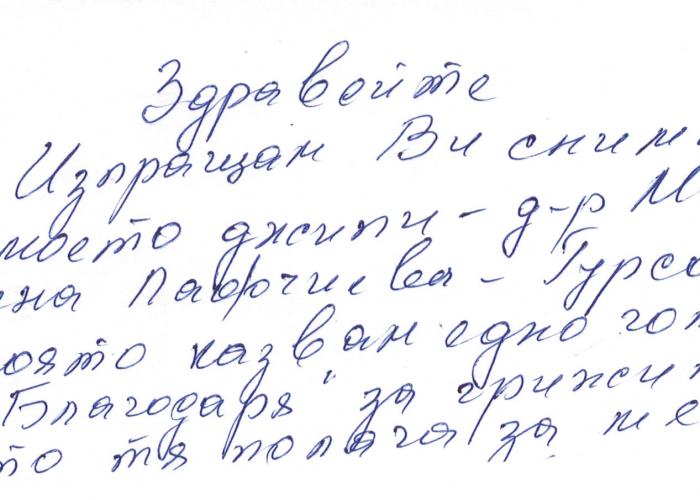 Здравейте
Изпращам Ви сним
моето джипи - д-р М
ена Лафчиева - Гурсо
оято казвам едно гол
Благодаря" за грижи
то тя полага за ме